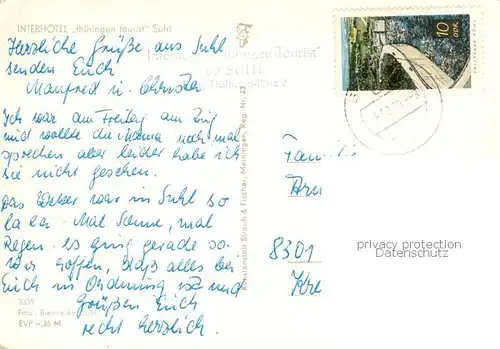 INTERHOTEL „thüringen tourist" Suhl
Herzliche Grüße aus Suhl
senden Euch
Manfred u. Christa
Ich war am Freitag am Zug
und wollte die Mama noch mal
sprechen aber leider habe ich
sie nicht gesehen.
Das Wetter war in Suhl so
la la. Mal Sonne, mal
Regen. es ging gerade so.
Wir hoffen, daß alles bei
Euch in Ordnung ist und
Grüßen Euch
recht herzlich.
EVP -,25 M
Kunstanstalt Straub & Fischer, Meiningen, Reg.-Nr. 23
Tourist"
SUHL
10
DDR
Familie
Arn
8301
privacy protection
Datenschutz